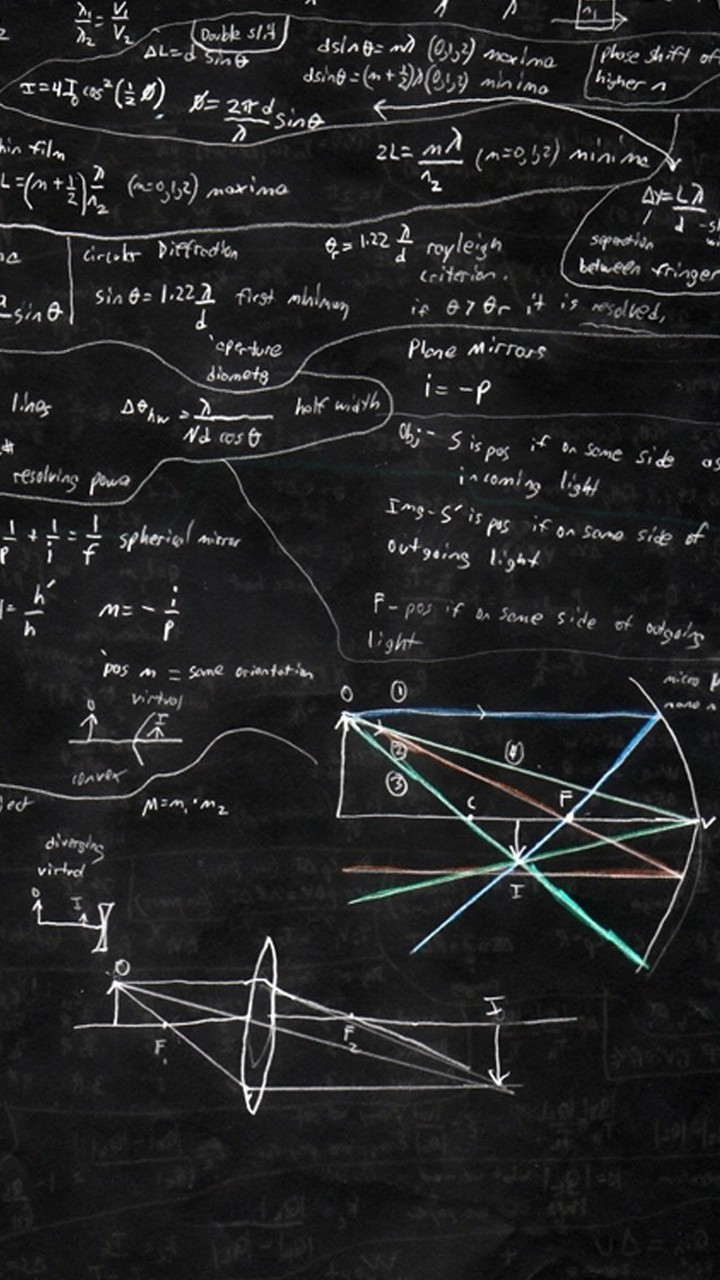 λ₁/λ₂ = V₁/V₂
n₁
Double slit
ΔL = d sinθ
dsinθ = mλ (0,1,2) maxima
dsinθ = (m + 1/2)λ (0,1,2) minima
phase shift of
higher n
I = 4I₀ cos²(1/2 ø)
ø = 2πd/λ sinθ
hin film
2L = mλ/n₂ (m=0,1,2) minima
L = (m + 1/2) λ/n₂ (m=0,1,2) maxima
Δy = Lλ/d
separation
between fringes
circular Diffraction
θr = 1.22 λ/d rayleigh
criterion.
sinθ = 1.22 λ/d first minimum
if θ > θr it is resolved.
sinθ
aperture
diameter
Plane Mirrors
i = -p
lines
Δθhw = λ/(Nd cosθ) half width
resolving power
Obj - S is pos if on same side as
incoming light
Img - S' is pos if on same side of
outgoing light
F - pos if on same side of outgoing
light
1/p + 1/i = 1/f spherical mirror
= h'/h
m = - i/p
pos m = same orientation
virtual
O
I
convex
micro
O
①
②
③
④
C
F
V
I
ject
M = m₁ · m₂
diverging
virtual
O
I
O
F₁
F₂
I